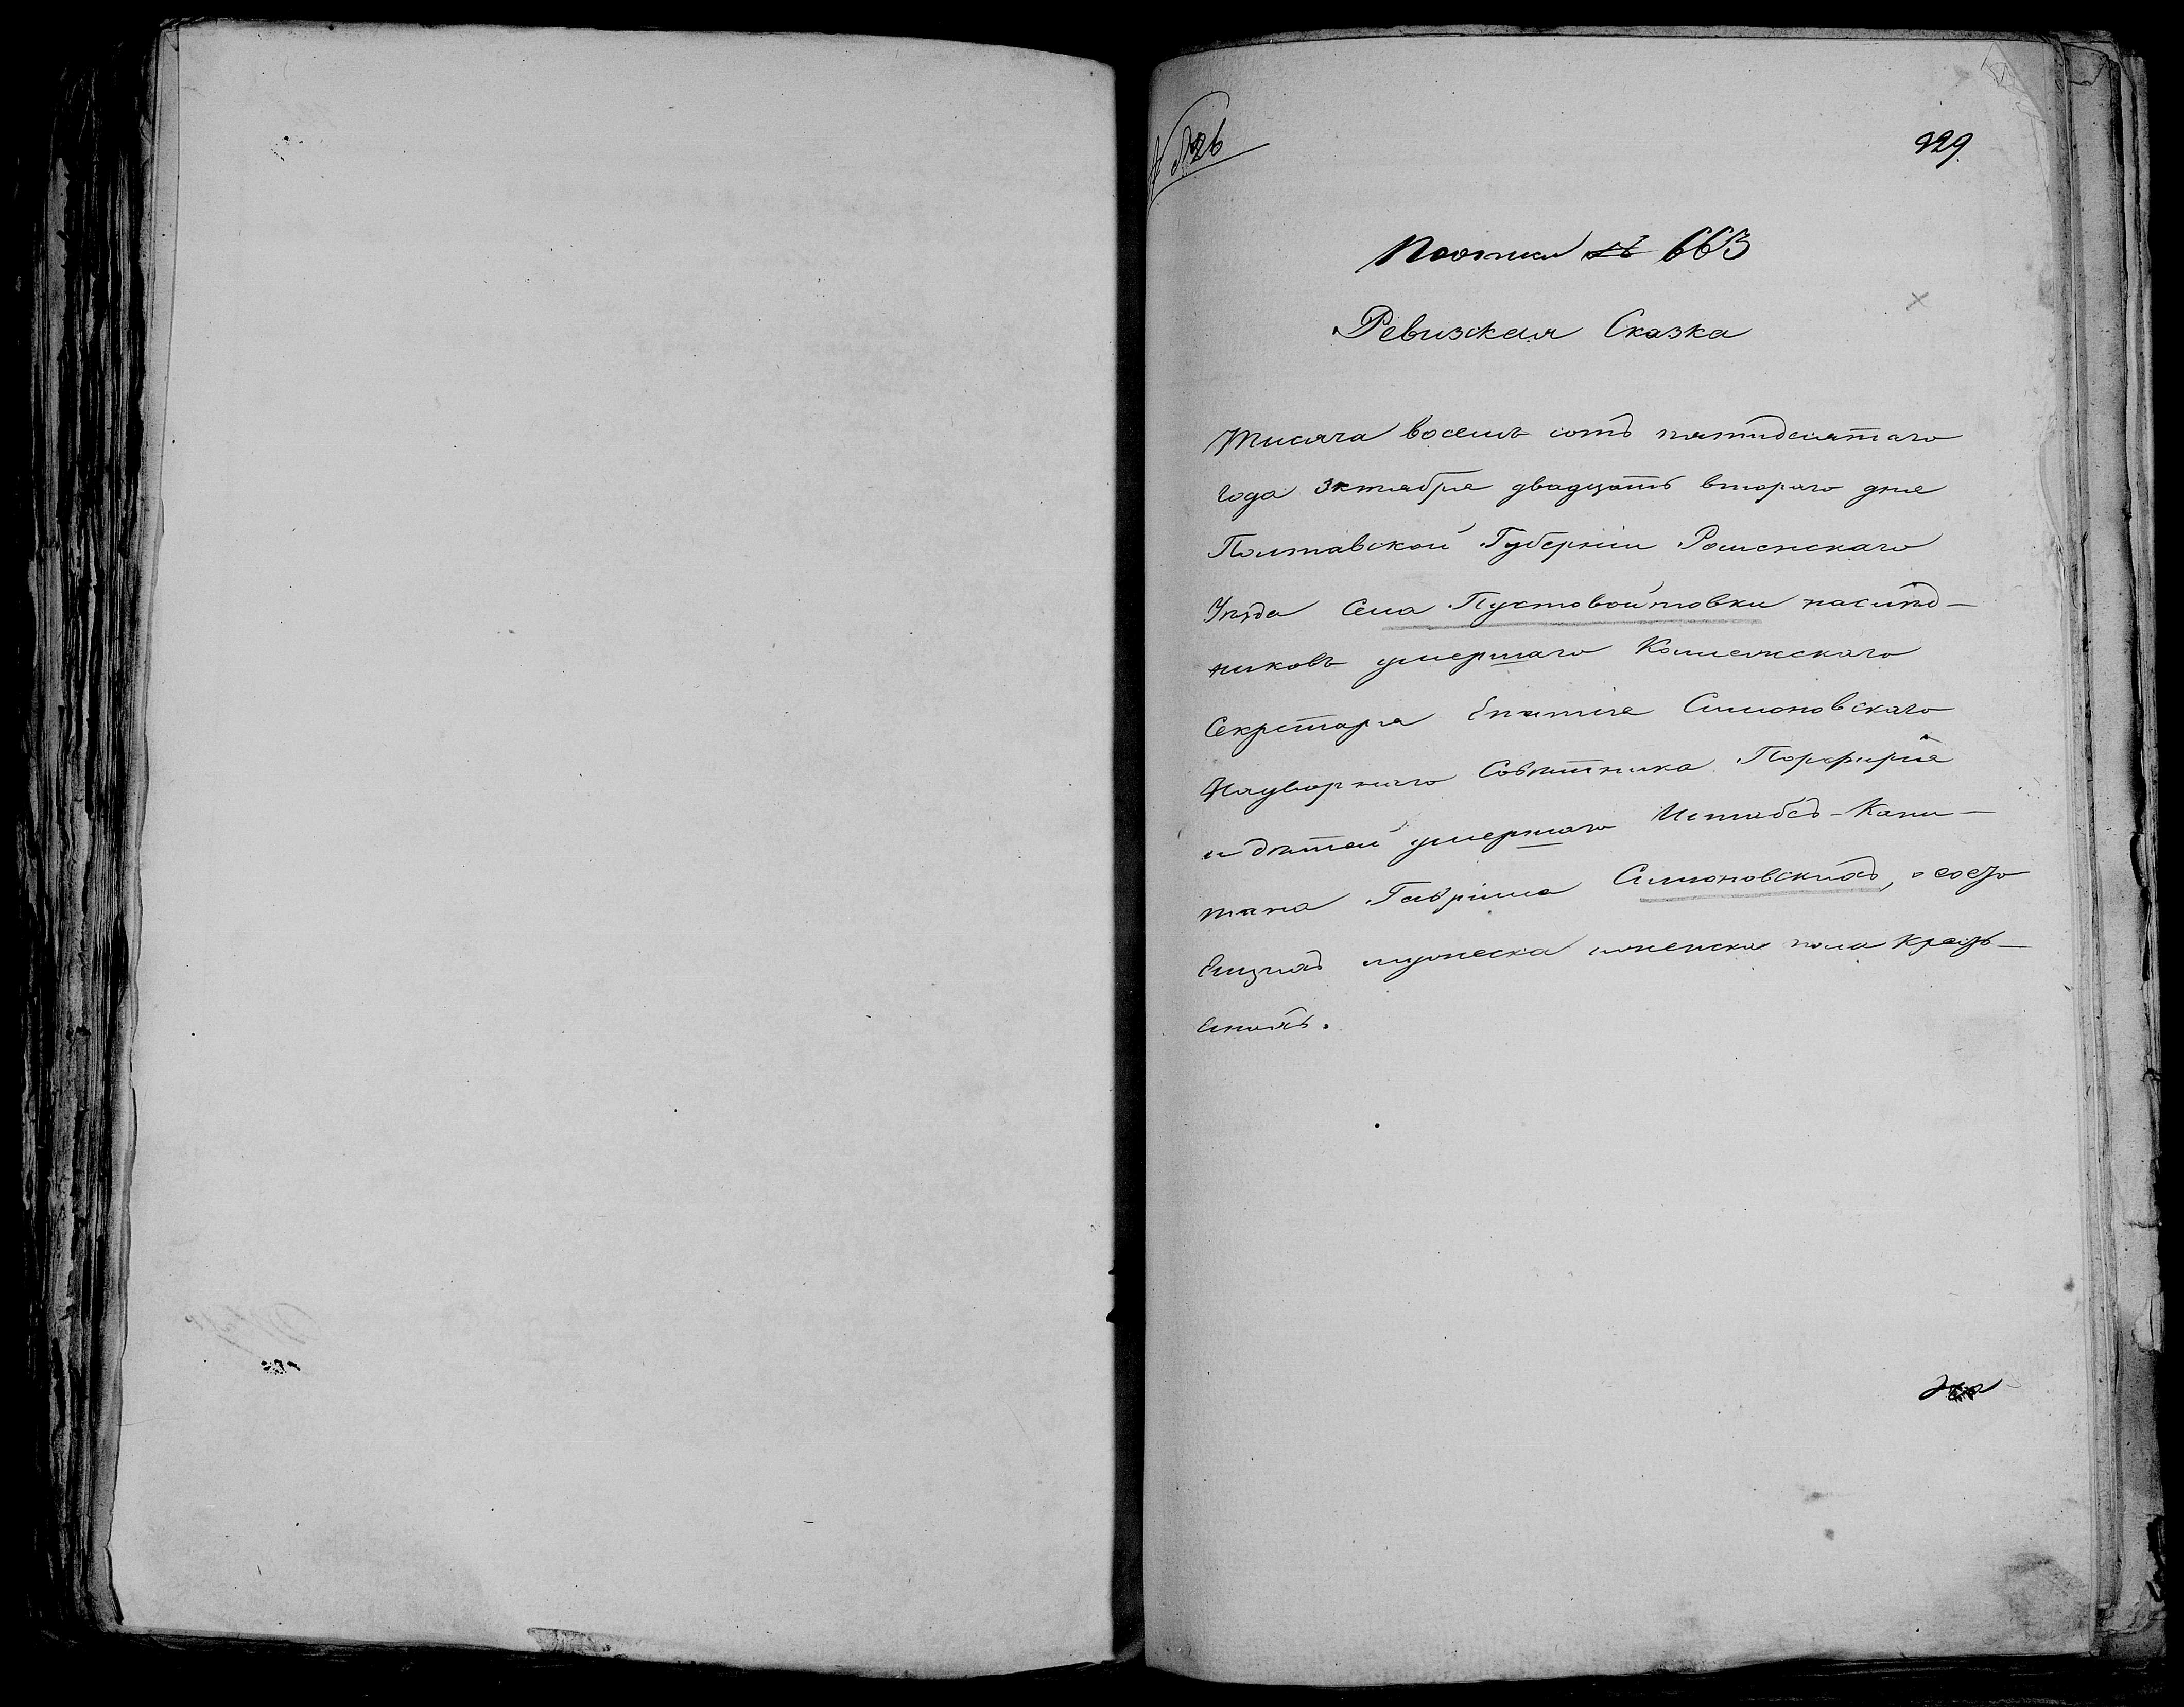 № 26
929.
Почтки № 663
Ревизская Сказка
Тысяча восемь сотъ пятидесятаго
года Октября двадцать втораго дня
Полтавской Губерніи Роменскаго
Уѣзда Села Пустовойтовки наслѣд-
никовъ умершаго Коллежскаго
Секретаря Ипатія Симоновскаго
Надворнаго Совѣтника Порфирія
и дѣтей умершаго Штабсъ-Капи-
тана Гавріила Симоновскихъ, о состо
ящихъ мужеска и женска пола кресть-
янахъ.